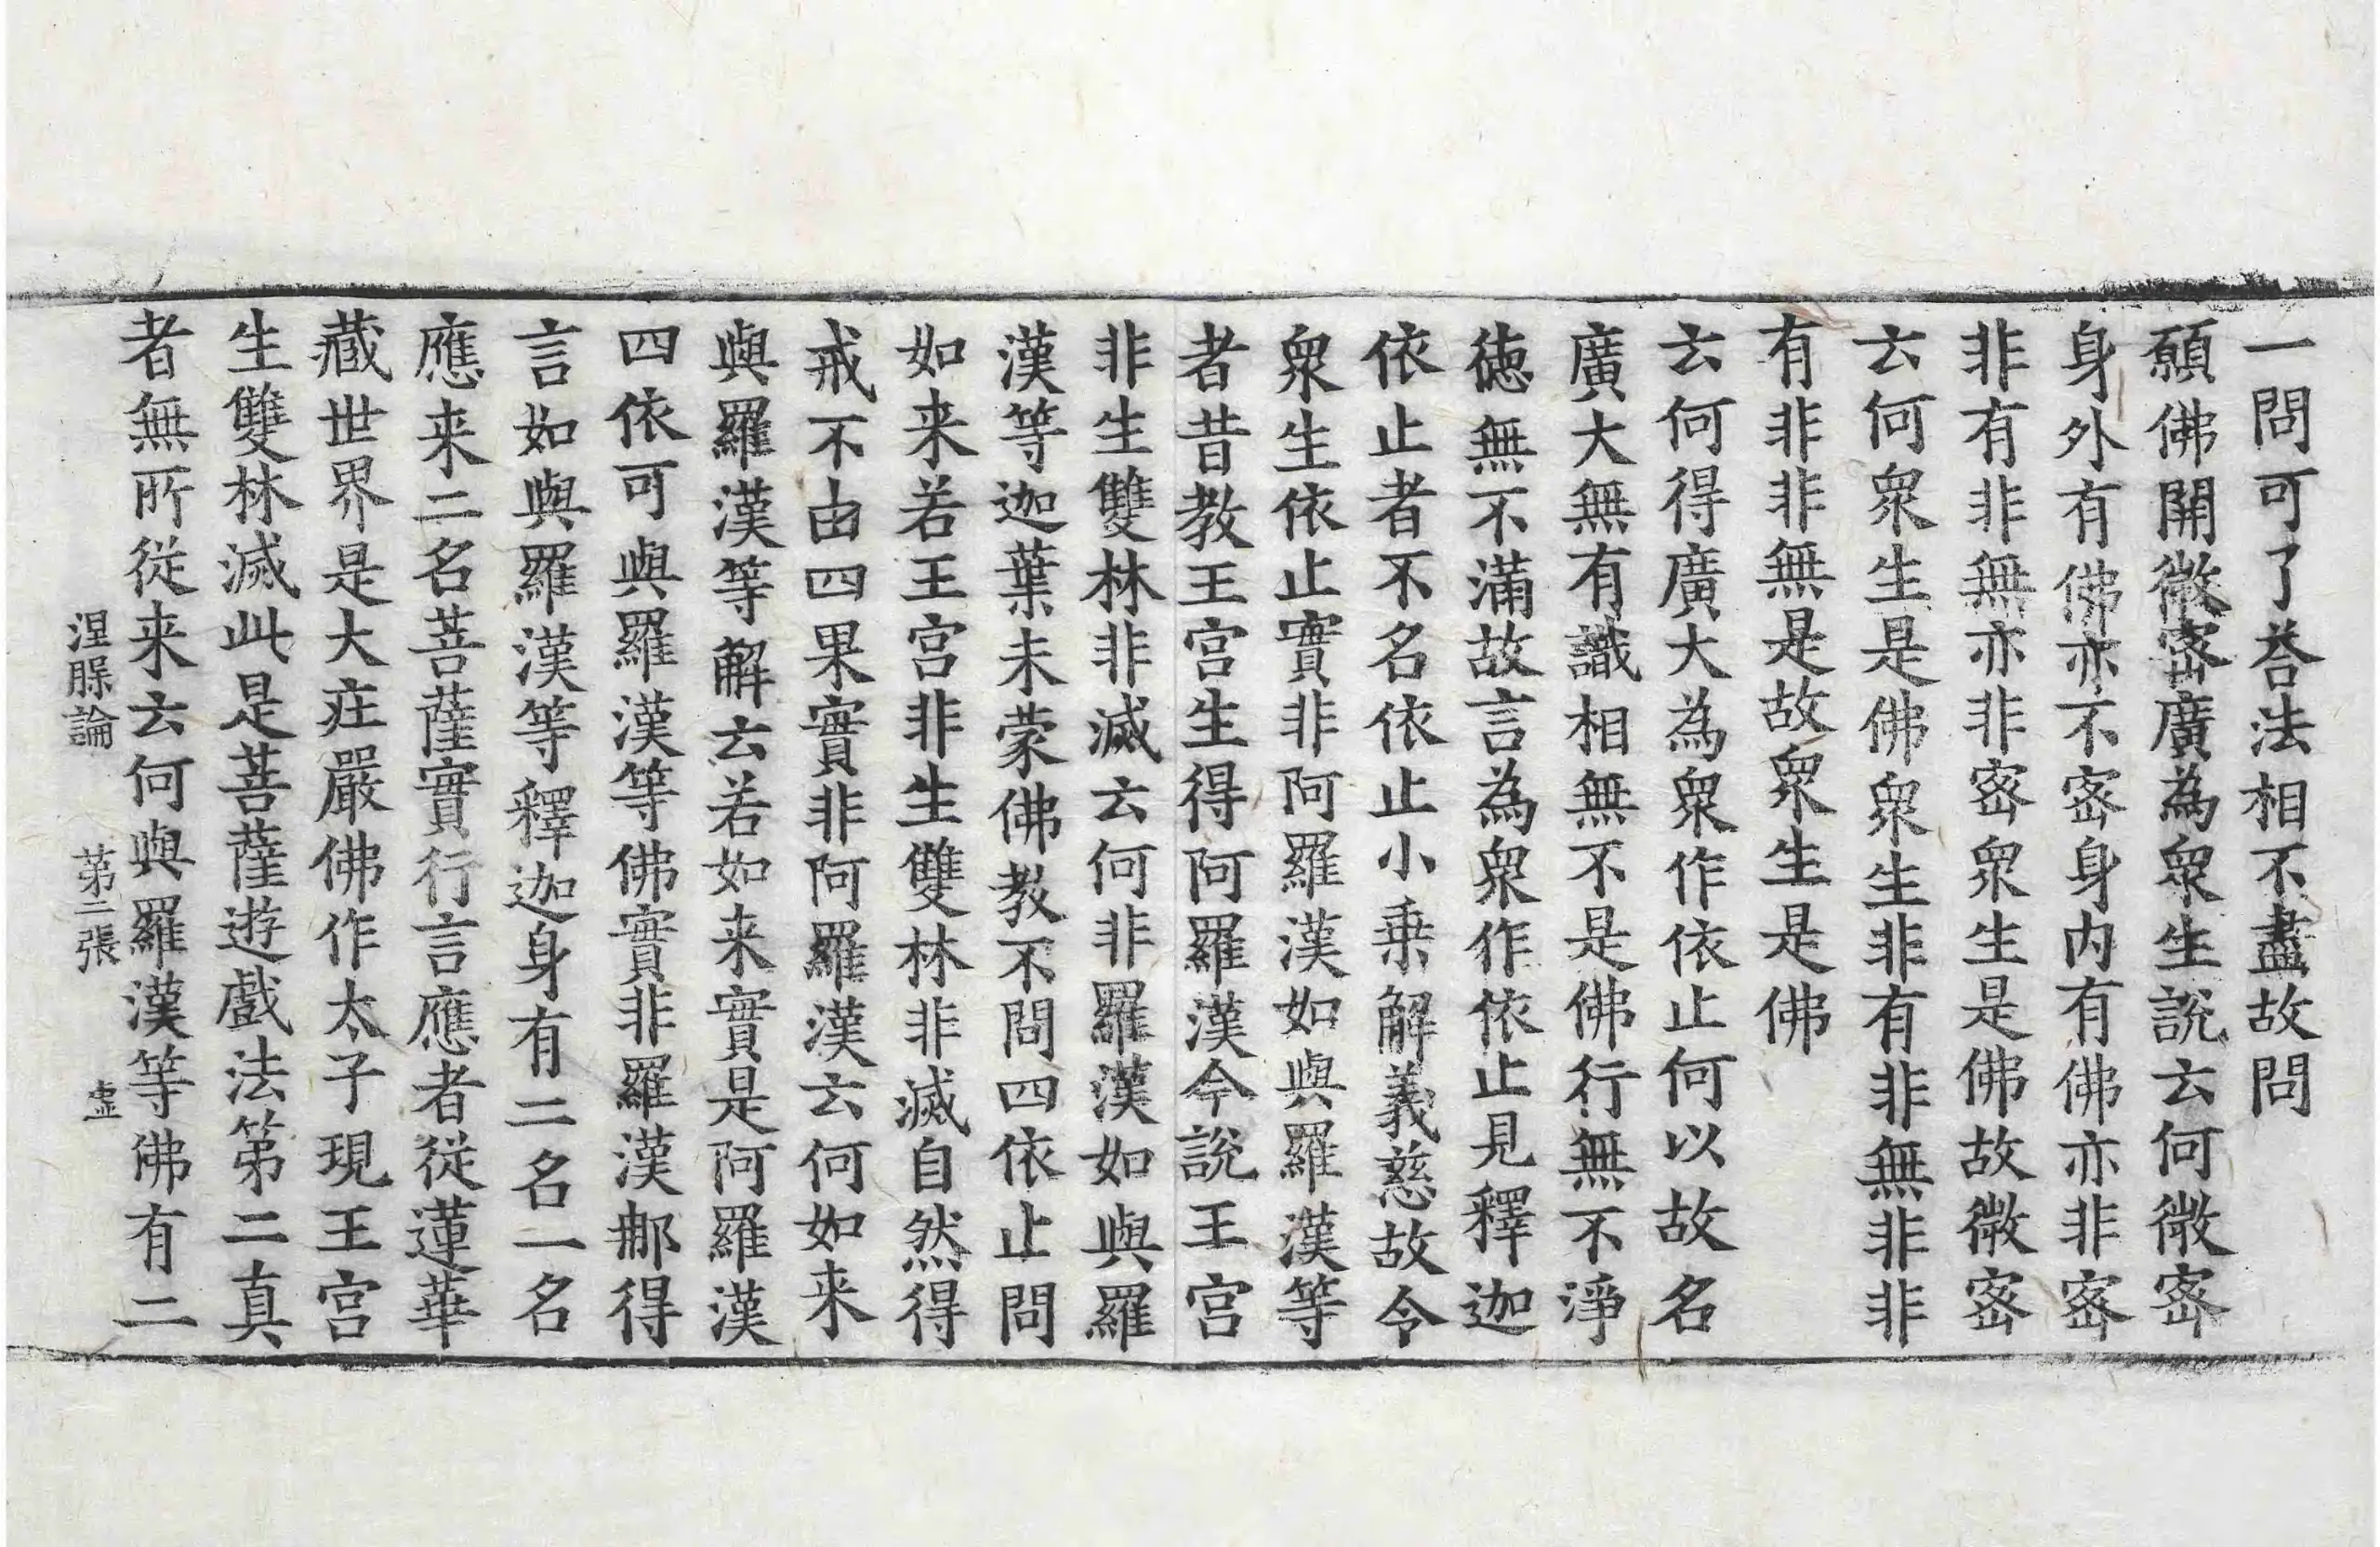 一問可了荅法相不盡故問
願佛開微宻廣為衆生說云何微宻
身外有佛亦不宻身内有佛亦非宻
非有非無亦非宻衆生是佛故微宻
云何衆生是佛衆生非有非無非非
有非非無是故衆生是佛
云何得廣大為衆作依止何以故名
廣大無有識相無不是佛行無不淨
徳無不滿故言為衆作依止見釋迦
依止者不名依止小乗解義慈故今
衆生依止實非阿羅漢如與羅漢等
者昔教王宫生得阿羅漢今說王宫
非生雙林非滅云何非羅漢如與羅
漢等迦葉未蒙佛教不問四依止問
如来若王宫非生雙林非滅自然得
戒不由四果實非阿羅漢云何如来
與羅漢等解云若如来實是阿羅漢
四依可與羅漢等佛實非羅漢那得
言如與羅漢等釋迦身有二名一名
應来二名菩薩實行言應者従蓮華
藏世界是大㽵嚴佛作太子現王宫
生雙林滅此是菩薩遊戲法第二真
者無所従来云何與羅漢等佛有二
涅脲論 第二張 虚